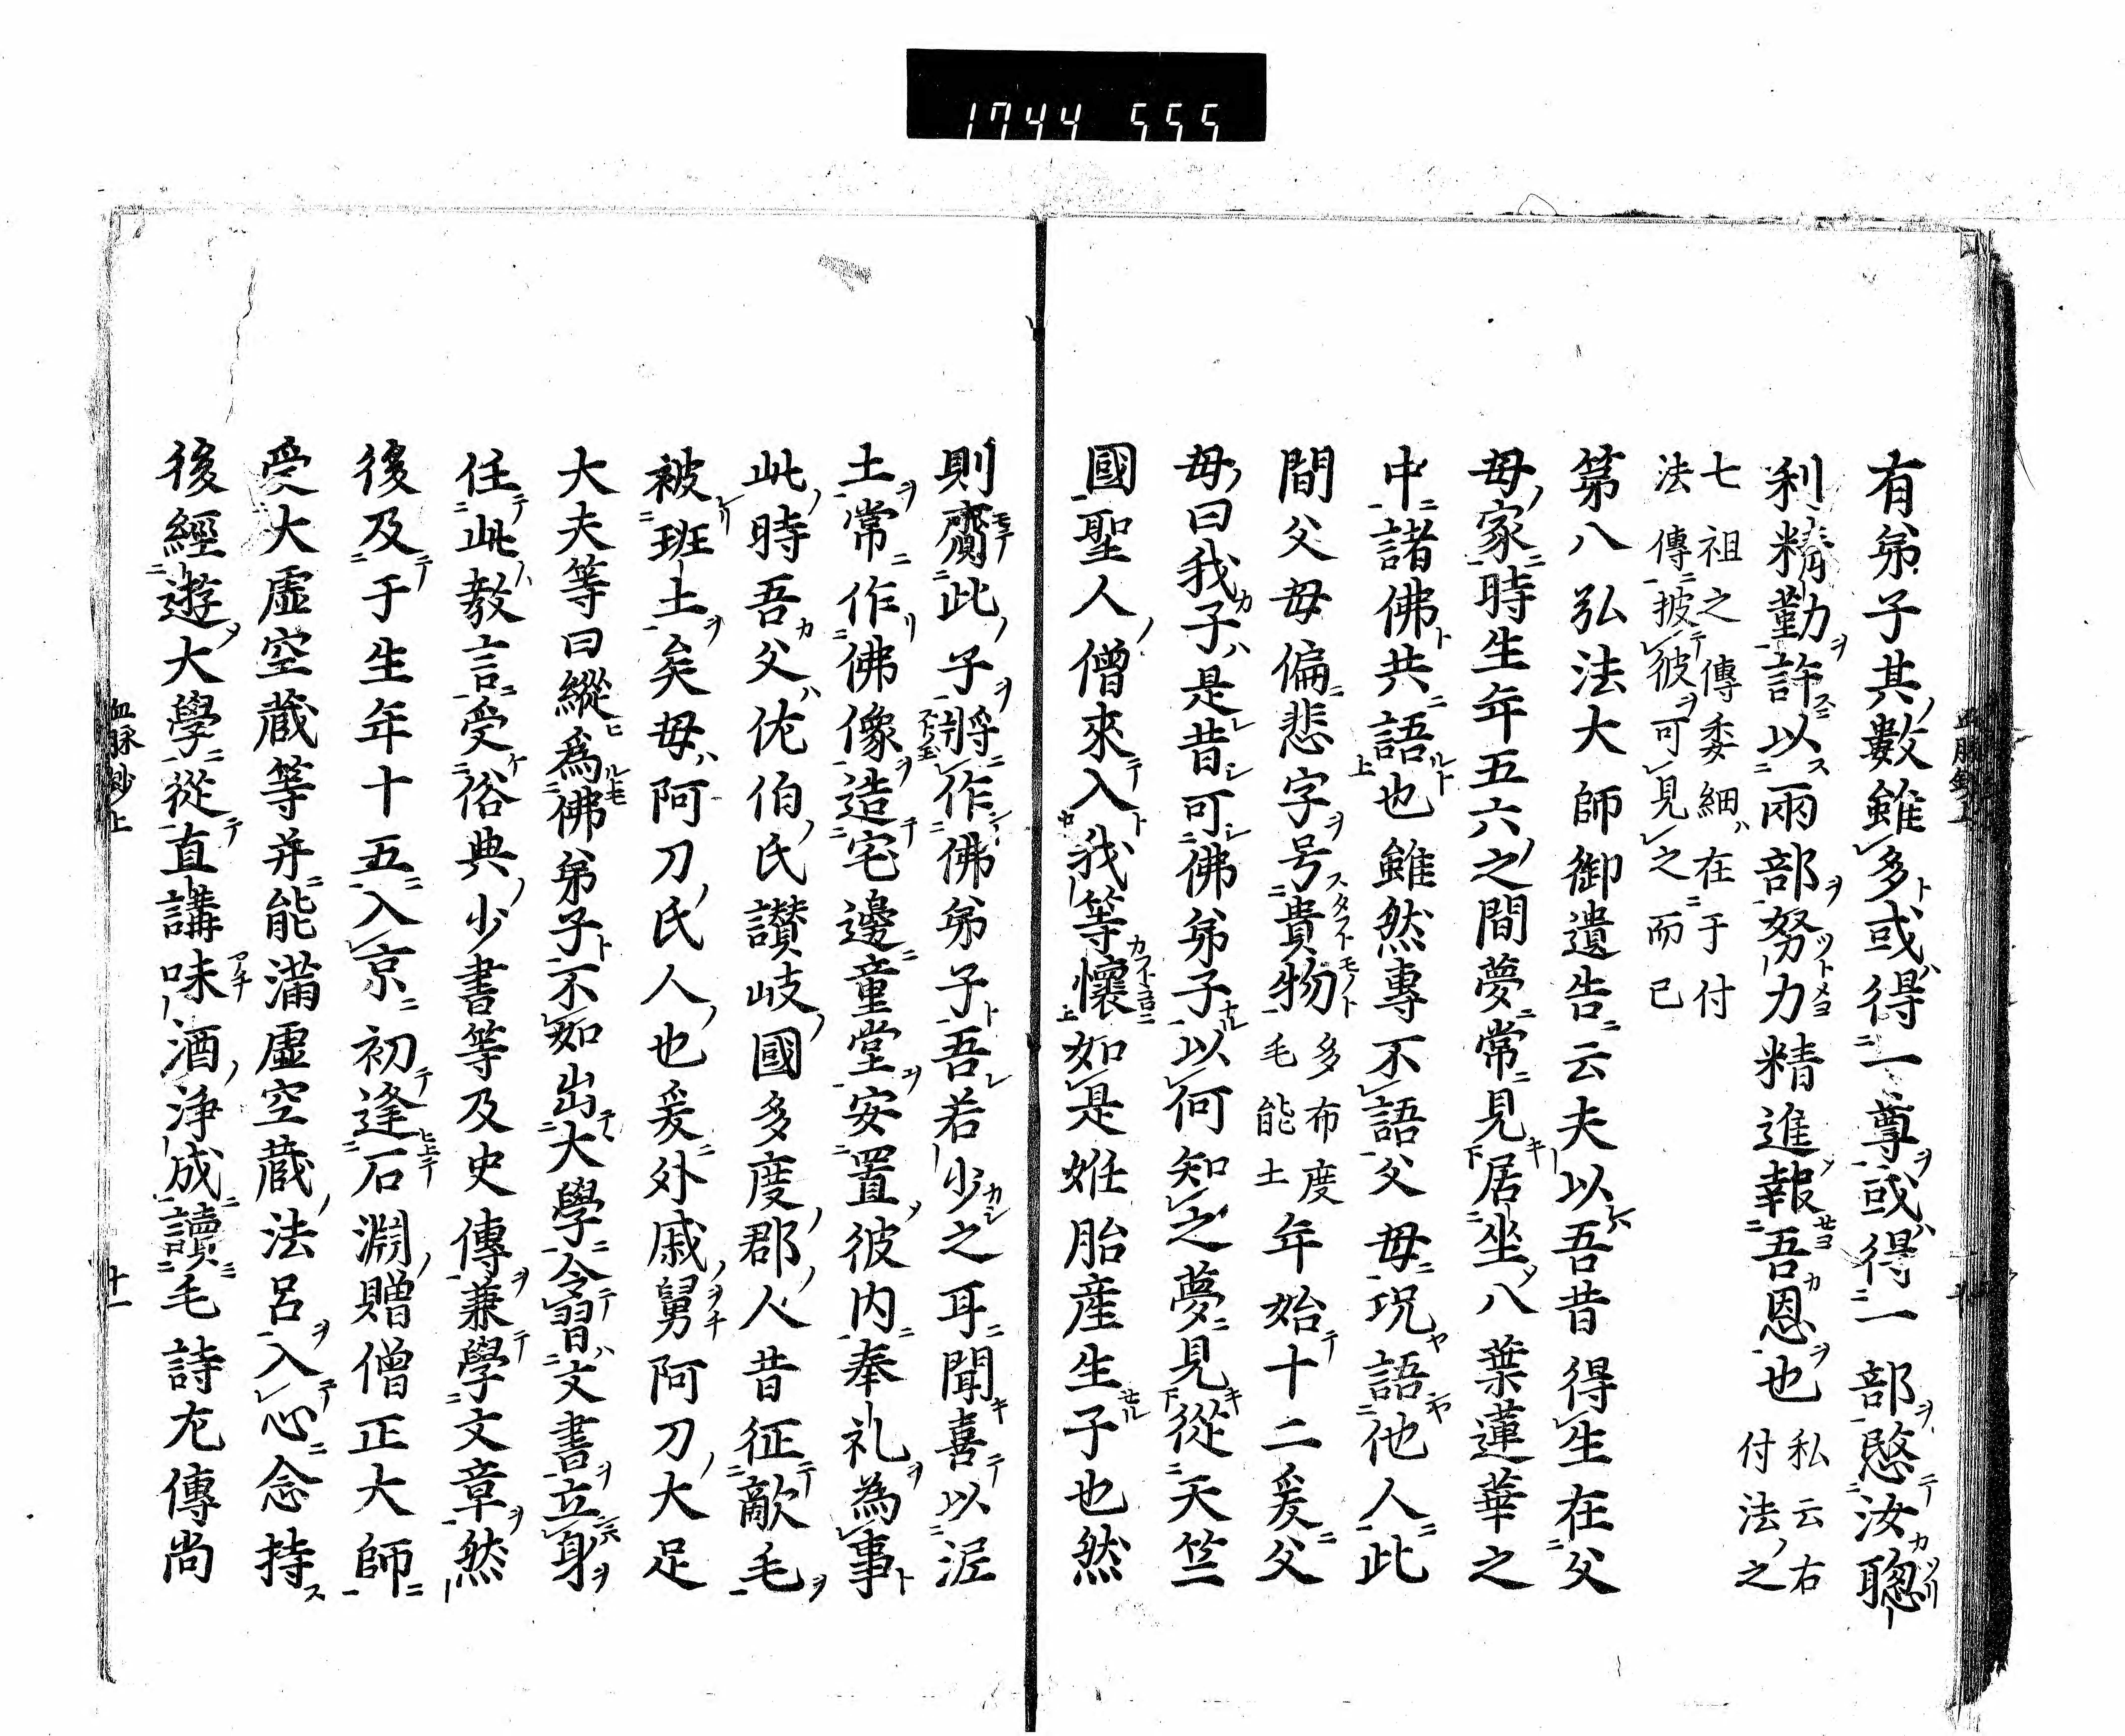 1744 555
有弟子其數雖多或得一尊或得一部愍汝聰
利精勤許以兩部努力精進報吾恩也 私云右付法之
七祖之傳委細在于付
法傳披彼可見之而已
第八弘法大師御遺告云夫以吾昔得生在父
母家時生年五六之間夢常見居坐八葉蓮華之
中諸佛共語也雖然專不語父母况語他人此
間父母偏悲字号貴物 多布度毛能土 年始十二爰父
母曰我子是昔可佛弟子以何知之夢見從天竺
國聖人僧來入我等懷如是姙胎產生子也然
則齎此子將作佛弟子吾若少之耳聞喜以泥
土常作佛像造宅邊童堂安置彼内奉礼為事
此時吾父佐伯氏讃岐國多度郡人昔征敵毛
被班土矣母阿刀氏人也爰外戚舅阿刀大足
大夫等曰縱爲佛弟子不如出大學令習文書立身
任此教言受俗典少書等及史傳兼學文章然
後及于生年十五入京初逢石淵贈僧正大師
受大虛空蔵等并能滿虛空蔵法呂入心念持
後經遊大學從直講味酒浄成讀毛詩尢傳尚
血脉鈔上 十一